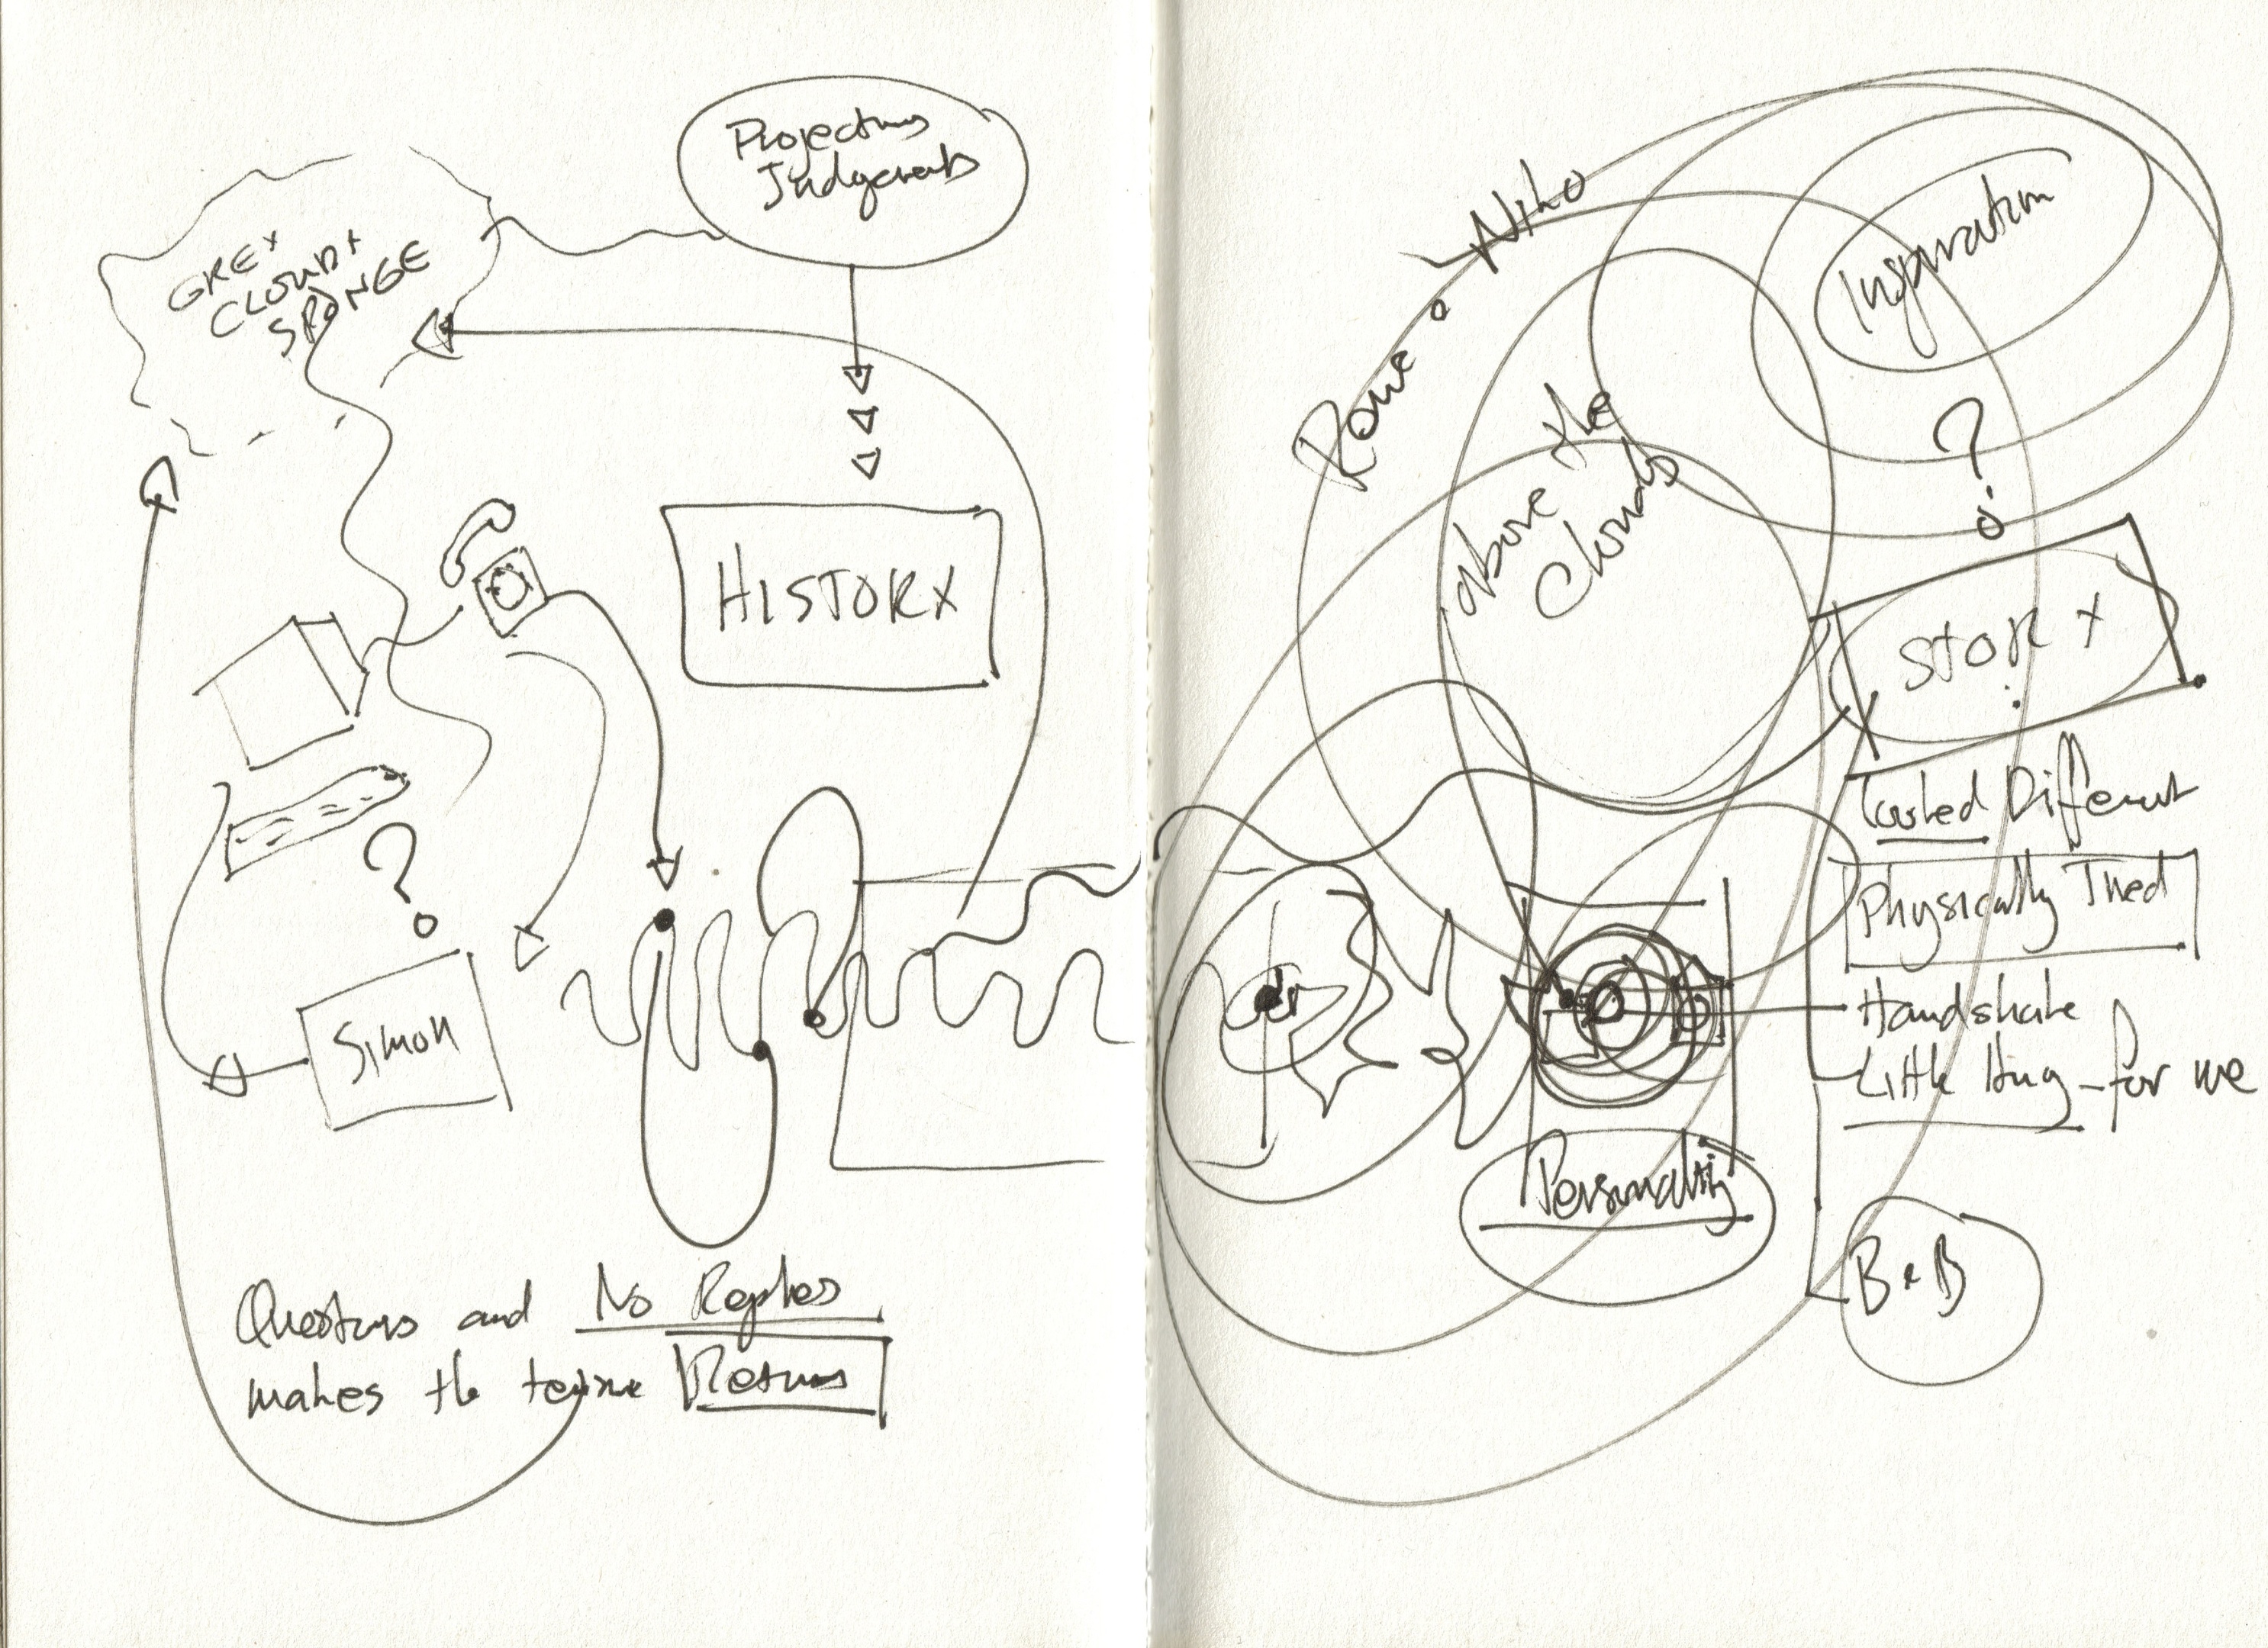 Projections
Judgements
GREY
CLOUD +
SPONGE
HISTORY
?
Simon
Questions and No Replies
makes the Return
Niko
Rome
Inspiration
above the
Clouds
?
STORY
Looked Different
Physically Tired
Handshake
Little Hug - for me
Personality
B & B